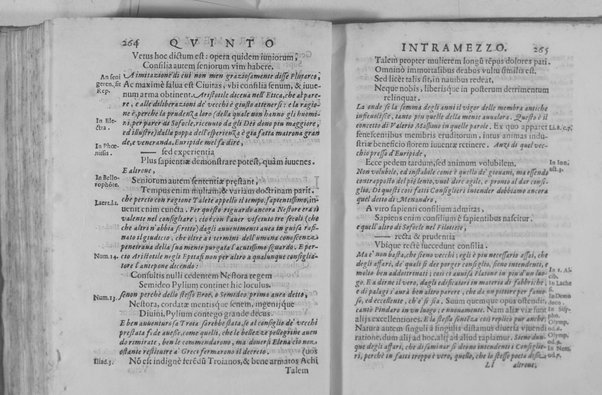 264 QVINTO
Verus hoc dictum est: opera quidem iuniorum,
Consilia autem seniorum vim habere.
A imitazione di cui non men graziosamente disse Plutarco,
Ac maximè salua est Ciuitas, vbi consilia senum, & iuue-
num arma obtinent. Aristotele decena nell'Etica, che al pare-
re, e alle deliberazioni de' vecchi è giusto attenersi: e la ragio-
ne è, perche la prudenza loro, della quale
ed illustre) dalla poppa dell'esperienza è già fatta matrona gran
de, e veneranda. Euripide
sed experientia
Plus sapientiæ demonstrare potest, quàm iuuenes.
E altroue,
Seniorum autem sententiæ præstant,
Tempus enim multam & variam doctrinam parit.
che perciò con ragione Talete appellò il tempo, sapientissimo, in-
uenit enim cuncta. Per questo riguardo ancora Nestore era il
valente nel consigliare; cioè con l'auer vescouto tre secoli (che
che altri n'abbia sfrito) dagli auuenimenti auea in guisa raffi-
nato il giudicio; che oltre a i termini dell'vmana conoscenza
penetraua della sua mente purgato l'acutissimo sguardo. E per-
ciò Aristotile negli Epitafi non per altro a qualunque consiglia-
tore l'antepone dicendo:
Consultis nulli cedentem Nestora regem
Semideo Pylium continet hic locus.
senon perchè desso stesso Eroe, o Semideo prima auea detto,
Nestora, cordatæ mentisque senem, ingenijque
Diuini, Pylium contego grande decus.
E ben auuenturosa Troia sarebbe stata, se al consiglio de' vecchi
prestata fede auesse, come quelli, che la bellezza pellegrina auen-
do rimirate, ben le commendarono, ma douersi Elena ciò non
ostante restituire a' Greci fermarono il decreto. (uos
Nõ est indignè ferẽdũ Troianos, & bene armatos Achi
Talem
An seni
geren. sit
Rep.
In Ele-
ctra.
In Phœ-
nissis.
In Bello-
rophôte.
Laer. l. 1.
Num. 14.
Num. 13.
Iliad. 3.
INTRAMEZZO. 265
Talem propter mulierem longũ tẽpus dolores pati.
Omninò immortalibus deabus vultu similis est.
Sed licèt talis sit, in nauibus redeat,
Neque nobis, liberisque in posterum detrimentum
relinquat.
La onde se la semenza degli anni il vigor delle membra antiche
infieuolisce, tanto più quello della mente auualora. Questo è il
concetto di Valerio Massimo in quelle parole. Ex quo apparet
senescentibus membris eruditorum, intus animos indu-
striæ beneficio florem iuuentæ retinere. Anzi di quel vec-
chio presso d'Euripide,
Ecce pedem tardum, sed animum volubilem.
Non volubile, ed instabile come è quello de' giouani, ma essendo
contrapposto del piè lento, vuol dire agile, e pronto al dar consi-
glio. Di questi così fatti Consiglieri intender dobbiamo ancora
quel detto di Menandro,
A viro sapienti consilium admittas,
Sapiens enim consilium è sapientibus nascitur,
e quell'altro di Sofocle nel Filottete,
recta & prudentia
Vbique rectè succedunt consilia.
Ma s'è non basta, che sieno vecchi i egli è più necessario assai, che
degli affari, de' quali si dee porger consiglio, sieno intendenti, e
molto ben addottrinati; così ci auuisa Platone in più d'un luo-
go. E a dirne il vero, dagli edificatori in materia di fabbriche;
e di palagi s'aurà ben altro parere, che da un pittore per famo-
so, ed eccellente, ch'e' si sia. Suum quemque opus ostendit,
cantò Pindaro in un luogo, e in vn'altro. Nam aliæ viæ sunt
alijs excellentiores. E la stessa sentenza così replicò pur anche:
Natura autem singuli à singulis distamus diuersa viuendi
ratione, dum alij ad hoc alij ad aliud rapiamur. Siene dun-
que degli affari, che disaminar si deono intendenti i Consiglie-
ri, perchè in fatti troppo è vero, quello, che lo stesso poeta disse
Ll altroue,
Li. 8. c. 7.
In Ion.
act. 3.
In 1. Al-
cib.
In Lache
te.
Olymp.
In Nem.